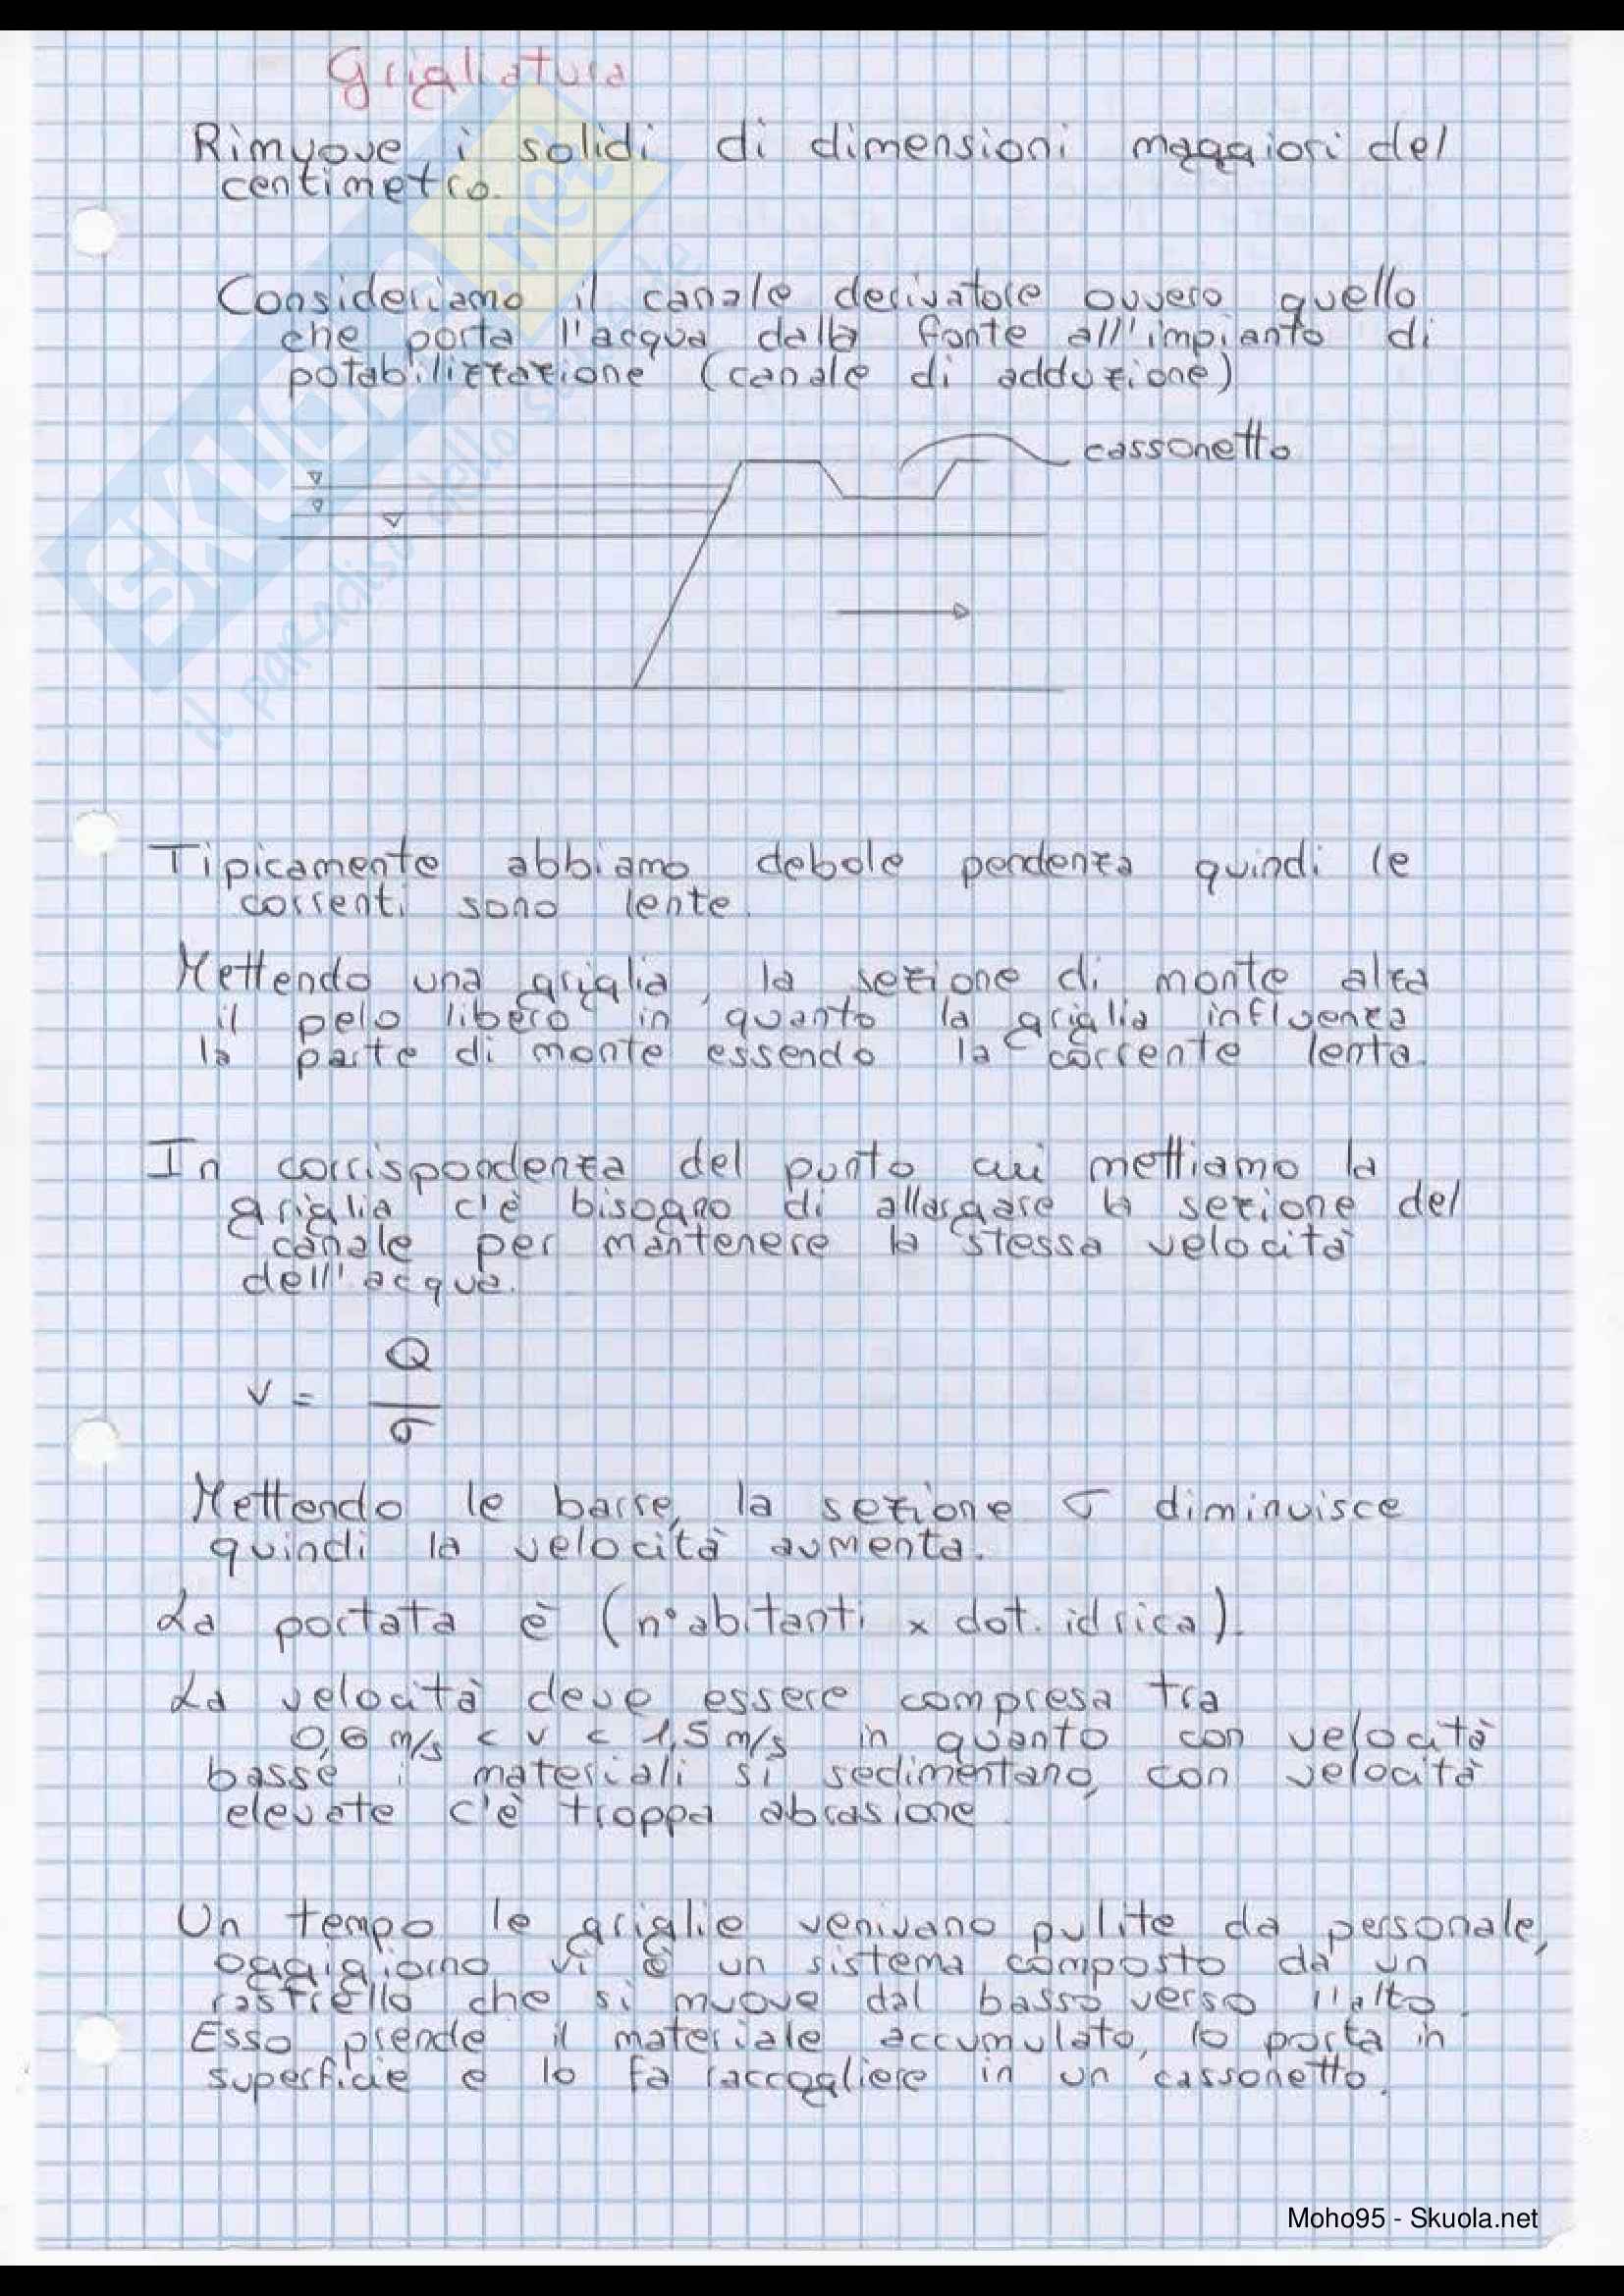 Grigliatura
Rimuove i solidi di dimensioni maggiori del
centimetro.
Consideriamo il canale derivatore ovvero quello
che porta l'acqua dalla fonte all'impianto di
potabilizzazione (canale di adduzione)
cassonetto
Tipicamente abbiamo debole pendenza quindi le
correnti sono lente.
Mettendo una griglia, la sezione di monte alza
il pelo libero in quanto la griglia influenza
la parte di monte essendo la corrente lenta.
In corrispondenza del punto cui mettiamo la
griglia c'è bisogno di allargare la sezione del
canale per mantenere la stessa velocità
dell'acqua.
v = Q / σ
Mettendo le barre, la sezione σ diminuisce
quindi la velocità aumenta.
La portata è (n° abitanti × dot. idrica).
La velocità deve essere compresa tra
0,6 m/s < v < 1,5 m/s in quanto con velocità
basse i materiali si sedimentano, con velocità
elevate c'è troppa abrasione.
Un tempo le griglie venivano pulite da personale,
oggigiorno vi è un sistema composto da un
rastrello che si muove dal basso verso l'alto.
Esso prende il materiale accumulato, lo porta in
superficie e lo fa raccogliere in un cassonetto.
SKUOLA.net
il paradiso dello studente
Moho95 - Skuola.net